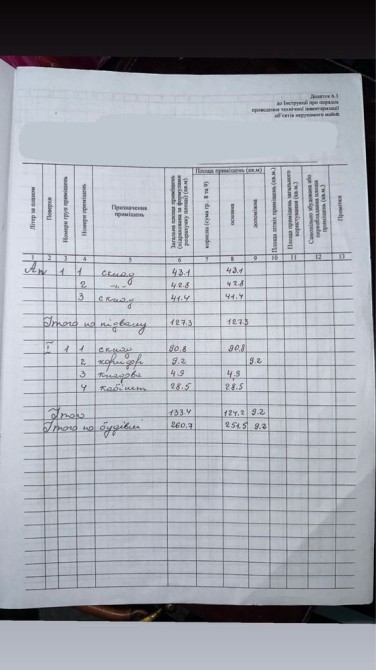 Додаток 6.1
до Інструкції про порядок
проведення технічної інвентаризації
об'єктів нерухомого майна
Літер за планом
Поверхи
Номери груп приміщень
Номери приміщень
Призначення приміщень
Загальна площа приміщень (підрахована за формулами розрахунку площі) (кв.м)
Площа приміщень (кв.м)
корисна (сума гр. 8 та 9)
основна
допоміжна
Площа літніх приміщень (кв.м.)
Площа приміщень загального користування (кв.м.)
Самовільно збудована або переобладнана площа приміщень (кв.м.)
Примітки
1 2 3 4 5 6 7 8 9 10 11 12 13
Ап 1 1 склад 43.1 43.1
2 -"- 42.8 42.8
3 склад 41.4 41.4
Ітого по підвалу 127.3 127.3
I 1 1 склад 90.8 90.8
2 коридор 9.2 9.2
3 кладова 4.9 4.9
4 кабінет 28.5 28.5
Ітого 133.4 124.2 9.2
Ітого по будівлі 260.7 251.5 9.2